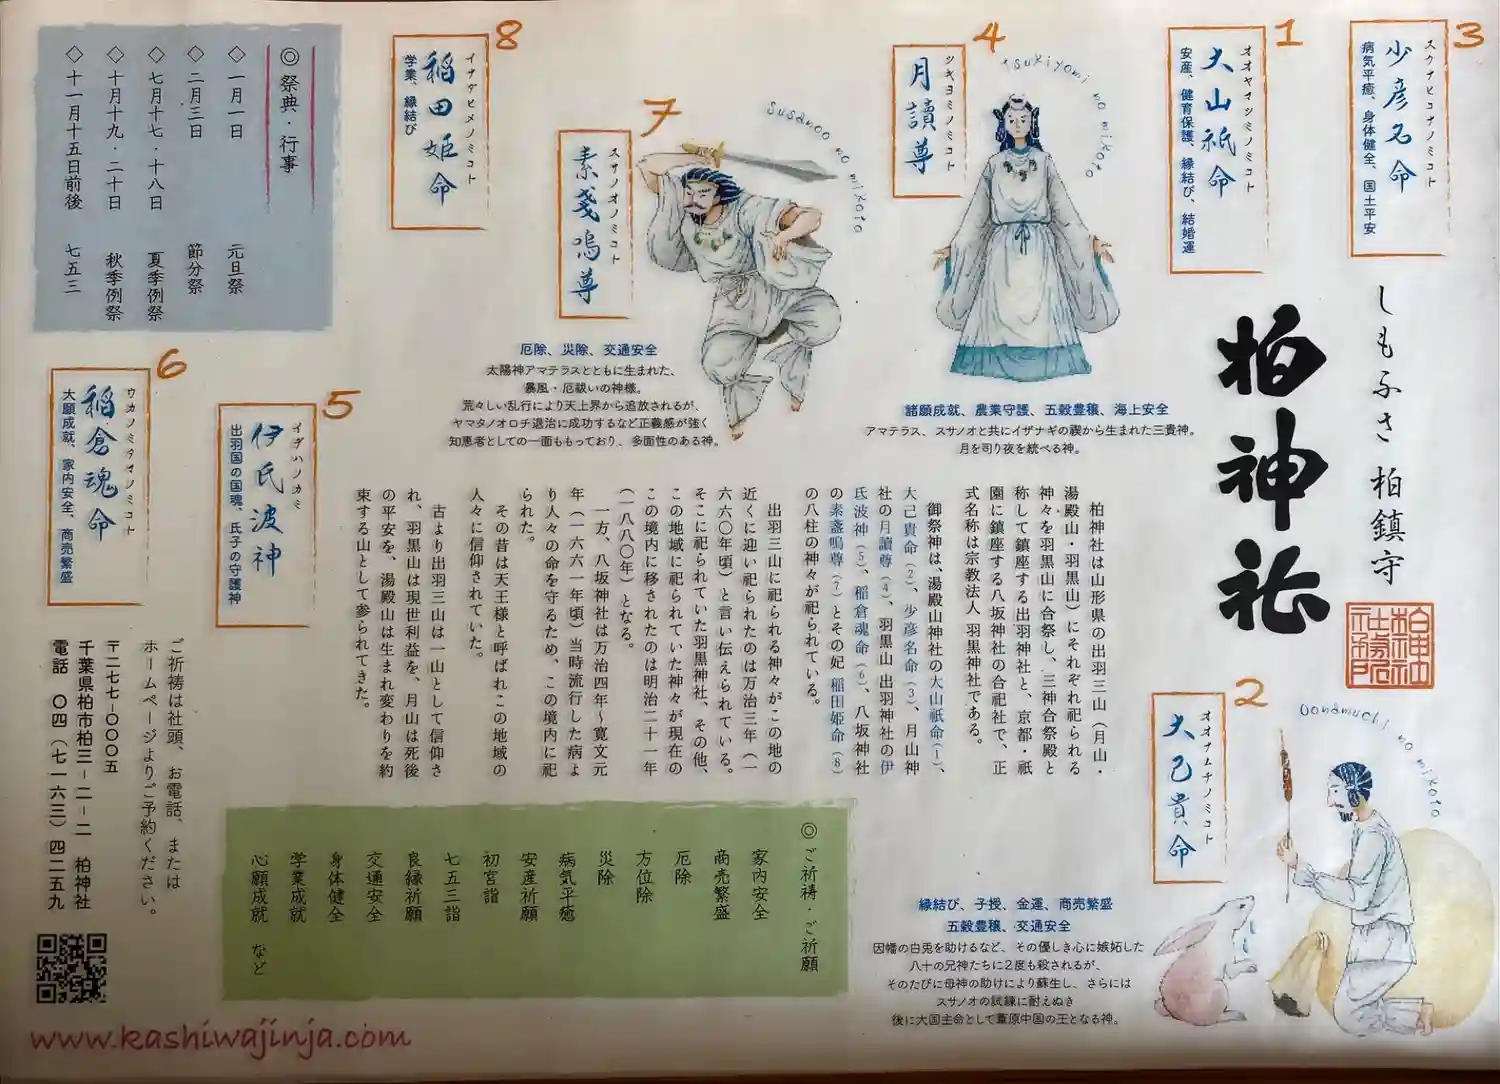 しもふさ 柏鎮守
柏神社
3
スクナヒコナノミコト
少彦名命
病気平癒、身体健全、国土平安
1
オオヤマツミノミコト
大山祇命
安産、健育保護、縁結び、結婚運
4
ツキヨミノミコト
月讀尊
Tsukiyomi no mikoto
諸願成就、農業守護、五穀豊穣、海上安全
アマテラス、スサノオと共にイザナギの禊から生まれた三貴神。
月を司り夜を統べる神。
7
スサノオノミコト
素戔嗚尊
Susanoo no mikoto
厄除、災除、交通安全
太陽神アマテラスとともに生まれた、
暴風・厄祓いの神様。
荒々しい乱行により天上界から追放されるが、
ヤマタノオロチ退治に成功するなど正義感が強く
知恵者としての一面ももっており、多面性のある神。
8
イナダヒメノミコト
稲田姫命
学業、縁結び
◎祭典・行事
◇一月一日 元旦祭
◇二月三日 節分祭
◇七月十七・十八日 夏季例祭
◇十月十九・二十日 秋季例祭
◇十一月十五日前後 七五三
2
オオナムチノミコト
大己貴命
Oonamuchi no mikoto
縁結び、子授、金運、商売繁盛
五穀豊穣、交通安全
因幡の白兎を助けるなど、その優しき心に嫉妬した
八十の兄神たちに2度も殺されるが、
そのたびに母神の助けにより蘇生し、さらには
スサノオの試練に耐えぬき
後に大国主命として葦原中国の王となる神。
柏神社は山形県の出羽三山（月山・
湯殿山・羽黒山）にそれぞれ祀られる
神々を羽黒山に合祭し、三神合祭殿と
称して鎮座する出羽神社と、京都・祇
園に鎮座する八坂神社の合祀社で、正
式名称は宗教法人 羽黒神社である。
御祭神は、湯殿山神社の大山祇命（1）、
大己貴命（2）、少彦名命（3）、月山神
社の月讀尊（4）、羽黒山 出羽神社の伊
氐波神（5）、稲倉魂命（6）、八坂神社
の素盞嗚尊（7）とその妃 稲田姫命（8）
の八柱の神々が祀られている。
出羽三山に祀られる神々がこの地の
近くに迎い祀られたのは万治三年（一
六六〇年頃）と言い伝えられている。
そこに祀られていた羽黒神社、その他、
この地域に祀られていた神々が現在の
この境内に移されたのは明治二十一年
（一八八〇年）となる。
一方、八坂神社は万治四年～寛文元
年（一六六一年頃）当時流行した病よ
り人々の命を守るため、この境内に祀
られた。
その昔は天王様と呼ばれこの地域の
人々に信仰されていた。
古より出羽三山は一山として信仰さ
れ、羽黒山は現世利益を、月山は死後
の平安を、湯殿山は生まれ変わりを約
束する山として参られてきた。
5
イデハノカミ
伊氐波神
出羽国の国魂、氏子の守護神
6
ウカノミタマノミコト
稲倉魂命
大願成就、家内安全、商売繁盛
◎ご祈祷・ご祈願
家内安全
商売繁盛
厄除
方位除
災除
病気平癒
安産祈願
初宮詣
七五三詣
良縁祈願
交通安全
身体健全
学業成就
心願成就 など
ご祈祷は社頭、お電話、または
ホームページよりご予約ください。
〒二七七-〇〇〇五
千葉県柏市柏三-二-二 柏神社
電話 〇四（七一六三）四二五九
www.kashiwajinja.com